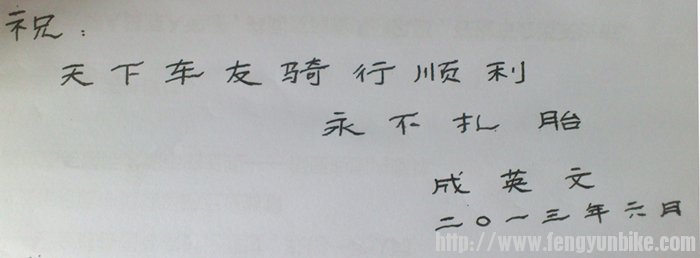 祝：
天下车友骑行顺利
永不扎胎
成英文
二〇一三年六月
http://www.fengyunbike.com